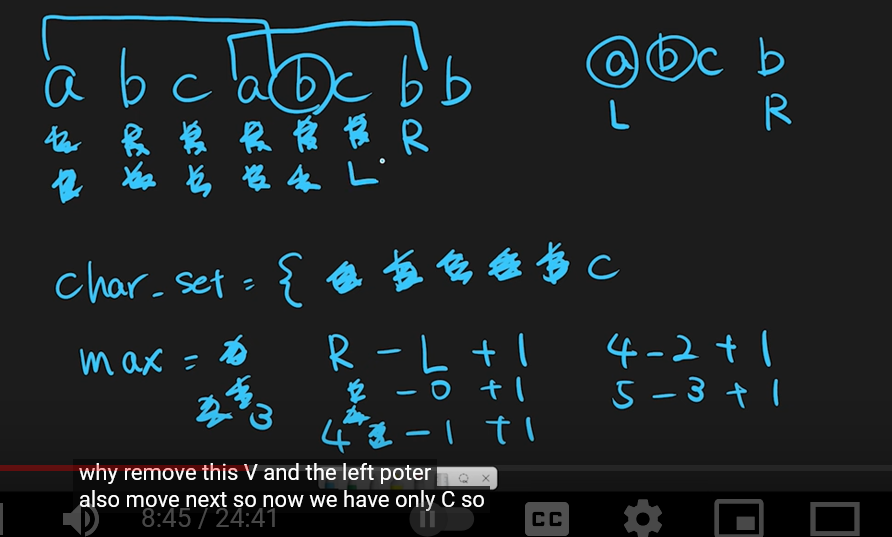 a b c a b c b b
a b c b
R
L
L R
char_set = { c
max =
3
R - L + 1
- 0 + 1
4 - 1 + 1
4 - 2 + 1
5 - 3 + 1
why remove this V and the left poter
also move next so now we have only C so
8:45 / 24:41
CC